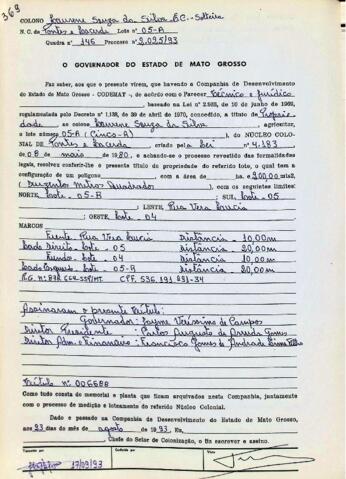 369
COLONO Laurene Souza da Silva B.C. - Solteira
N. C. de Pontes e Lacerda Lote nº 05-A
Quadra nº 146 Processo nº 2.025/93
O GOVERNADOR DO ESTADO DE MATO GROSSO
Faz saber, aos que o presente virem, que havendo a Companhia de Desenvolvimento
do Estado de Mato Grosso - CODEMAT -, de acôrdo com o Parecer Técnico e Jurídico
, baseado na Lei nº 2.983, de 10 de junho de 1969,
regulamentada pelo Decreto nº 1.138, de 39 de abril de 1970, concedido, a título de Proprie
dade ao colono Laurene Souza da Silva, agricultor,
o lote número 05-A (Cinco-A), do NÚCLEO COLO-
NIAL DE Pontes e Lacerda, criado pela Lei nº 4.183
de 08 de maio de 1980, e achando-se o processo revestido das formalidades
legais, resolveu conferir-lhe o presente título da propriedade do referido lote, o qual tem a
configuração de um polígono com a área de 200,00 mts2,
(Duzentos Metros Quadrados), com os seguintes limites:
NORTE, Lote - 05-B; SUL, Lote - 05
; LESTE, Rua Vera Lucia
; OESTE, Lote - 04
MARCOS
Frente Rua Vera Lucia Distância - 10,00m
Lado Direito - Lote - 05 Distância - 20,00m
Fundo - Lote - 04 Distância - 10,00m
Lado Esquerdo - Lote - 05-B Distância - 20,00m
CPF. 536.191
Assinaram o presente título:
Governador: Jayme Veríssimo de Campos
Diretor Presidente - Carlos Augusto de Arruda Gomes
Diretor Adm. e Financeiro: Francisco Gomes de Andrade Lima Filho
Título nº 006688
Como tudo consta do memorial e planta que ficam arquivados nesta Companhia, juntamente
com o processo de medição e loteamento do referido Núcleo Colonial.
Dado e passado na Companhia de Desenvolvimento do Estado de Mato Grosso,
aos 23 dias do mês de agosto de 1993, Eu,
Chefe do Setor de Colonização, o fiz escrever e assino.
Conferido por
Visto
17/09/93